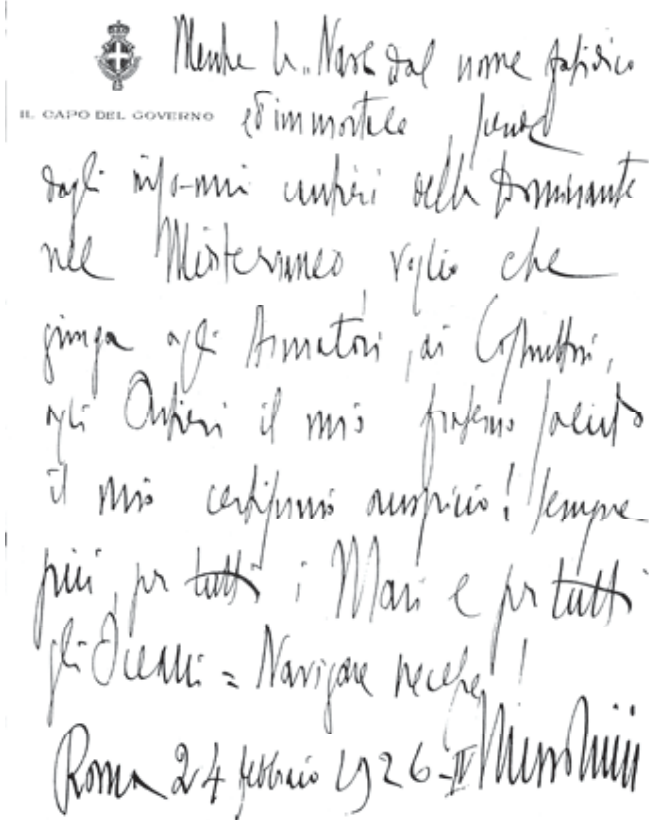 Mentre la Nave dal nome fatidico
IL CAPO DEL GOVERNO
ed immortale, scende
dagli insonni cantieri della Dominante
nel Mediterraneo, voglio che
giunga agli Armatori, ai Costruttori,
agli Operai il mio fraterno saluto
il mio certissimo auspicio! Sempre
più, per tutti i Mari e per tutti
gli Oceani = Navigare necesse!
Roma 24 febbraio 1926-IV Mussolini